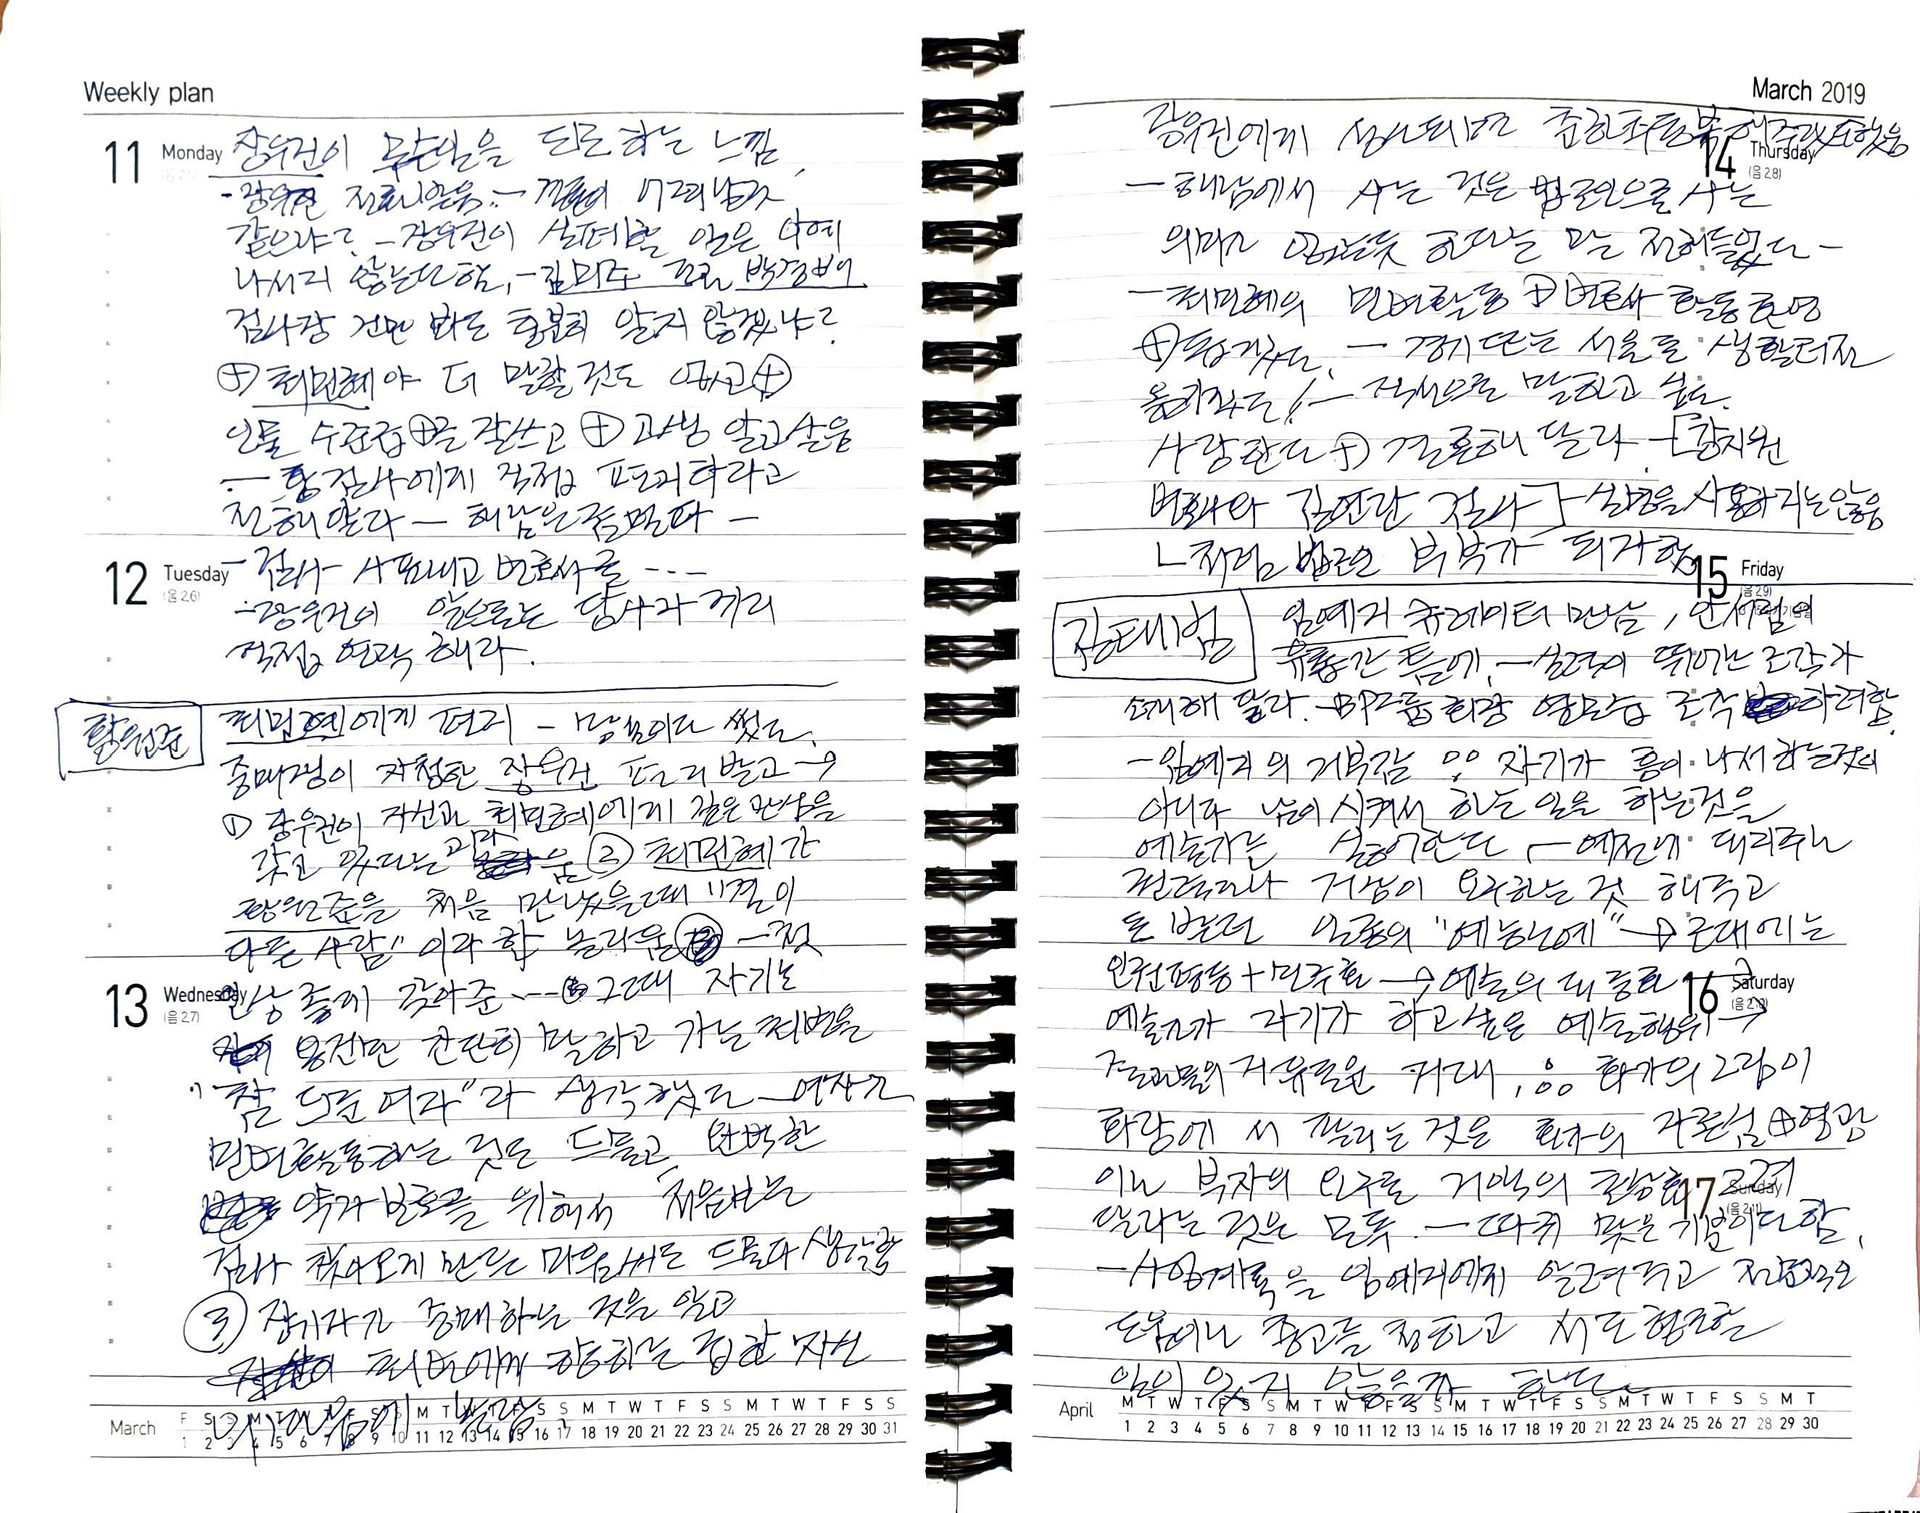 Weekly plan
11 Monday
장우건이 못난일을 되로 하는 느낌
- 장우건
같으냐? - 장우건이 실패할 일은 아예
나서지 않는다함, - 김미주 프로 박경배
검사장 건만 봐도 충분히 알지 않겠냐?
⊕ 최민혜야 더 말할것도 없고 ⊕
인물 수준급 ⊕ 글 잘쓰고 ⊕ 고생 알고 싶음
- 황검사에게 직접 프로리하라고
전해 알라 - 해남은 좀 멀다 -
12 Tuesday
(음 2.6)
- 검사 사표내고 변호사를 ---
- 장우건이 앞으로는 당사자 끼리
직접 연락 해라.
황원준
최민현에게 편지 - 말씀이다 썼다.
중매쟁이 자청한 장우건 프로리 받고 →
① 장우건이 자신과 최민혜에게 깊은 만남을
갖고 있다는 고마움 ② 최민혜가
황원준을 처음 만났을때 "결이
다른 사람" 이라 함 놀라움 - 첫
13 Wednesday
(음 2.7)
인상 좋게 갖아준 --- 그때 자기는
용건만 간단히 말하고 가는 최변을
"참 드문 여자"라 생각했다 - 여자가
민변활동하는 것도 드물고 완벽한
약자 변호를 위해서 처음보는
검사 찾아오게 만든 마음씨도 드물다 생각함
③ 장기자가 중매하는 것을 알고
최변에게 향하는 급한 자신
의 마음에 놀람
March
F S S M T W T F S S M T W T F S S M T W T F S S M T W T F S S
1 2 3 4 5 6 7 8 9 10 11 12 13 14 15 16 17 18 19 20 21 22 23 24 25 26 27 28 29 30 31
March 2019
장우건에게 성사되면
14 Thursday
(음 2.8)
- 해남에서 사는 것은 법조인으로 사는
의미가 없는듯 하다는 말 전혀들없다 -
- 최민혜의 민변활동 ⊕ 변호사 활동 환영
⊕ 돕겠다. - 경기 또는 서울로 생활터전
옮기겠다! - 직선으로 말하고 싶다.
사랑한다 ⊕ 결혼해 달라 - [강지원
변호사와 김연란 검사] - 실명을 사용하지는 않음
ㄴ 직접 법조인 부부가 되자함
15 Friday
(음 2.9)
김태범
임예지 큐레이터 만남, 안서림의
유학간 틈에, - 실력이 뛰어난 조각가
소개해 달라. - BP그룹 회장 영문을 조각 하려함.
- 임예지의 거부감 ∵ 자기가 흥이 나서 하는것이
아니라 남이 시켜서 하는 일을 하는것을
예술가는 싫어한다 - 예전에 대리주나
권력자나 거상이 요구하는 것 해주고
돈 받던 일종의 "예능노예" → 근대에는
인권평등 + 민주화 → 예술의 대중화 →
16 Saturday
(음 2.10)
예술가가 자기가 하고싶은 예술행위 →
자유로운 거래, ∴ 화가의 그림이
화랑에서 팔리는 것은 화가의 자존심 ⊕ 영광
이나 부자의 요구로 거액의 초상화 그려
17 Sunday
(음 2.11)
달라는 것은 모독. - 따귀 맞은 기분이다 함.
- 사업계획을 임예지에게 알려주고 전문적인
도움이나 충고를 청하고 서로 협조할
일이 있지 않을까 한다.
April
M T W T F S S M T W T F S S M T W T F S S M T W T F S S M T
1 2 3 4 5 6 7 8 9 10 11 12 13 14 15 16 17 18 19 20 21 22 23 24 25 26 27 28 29 30